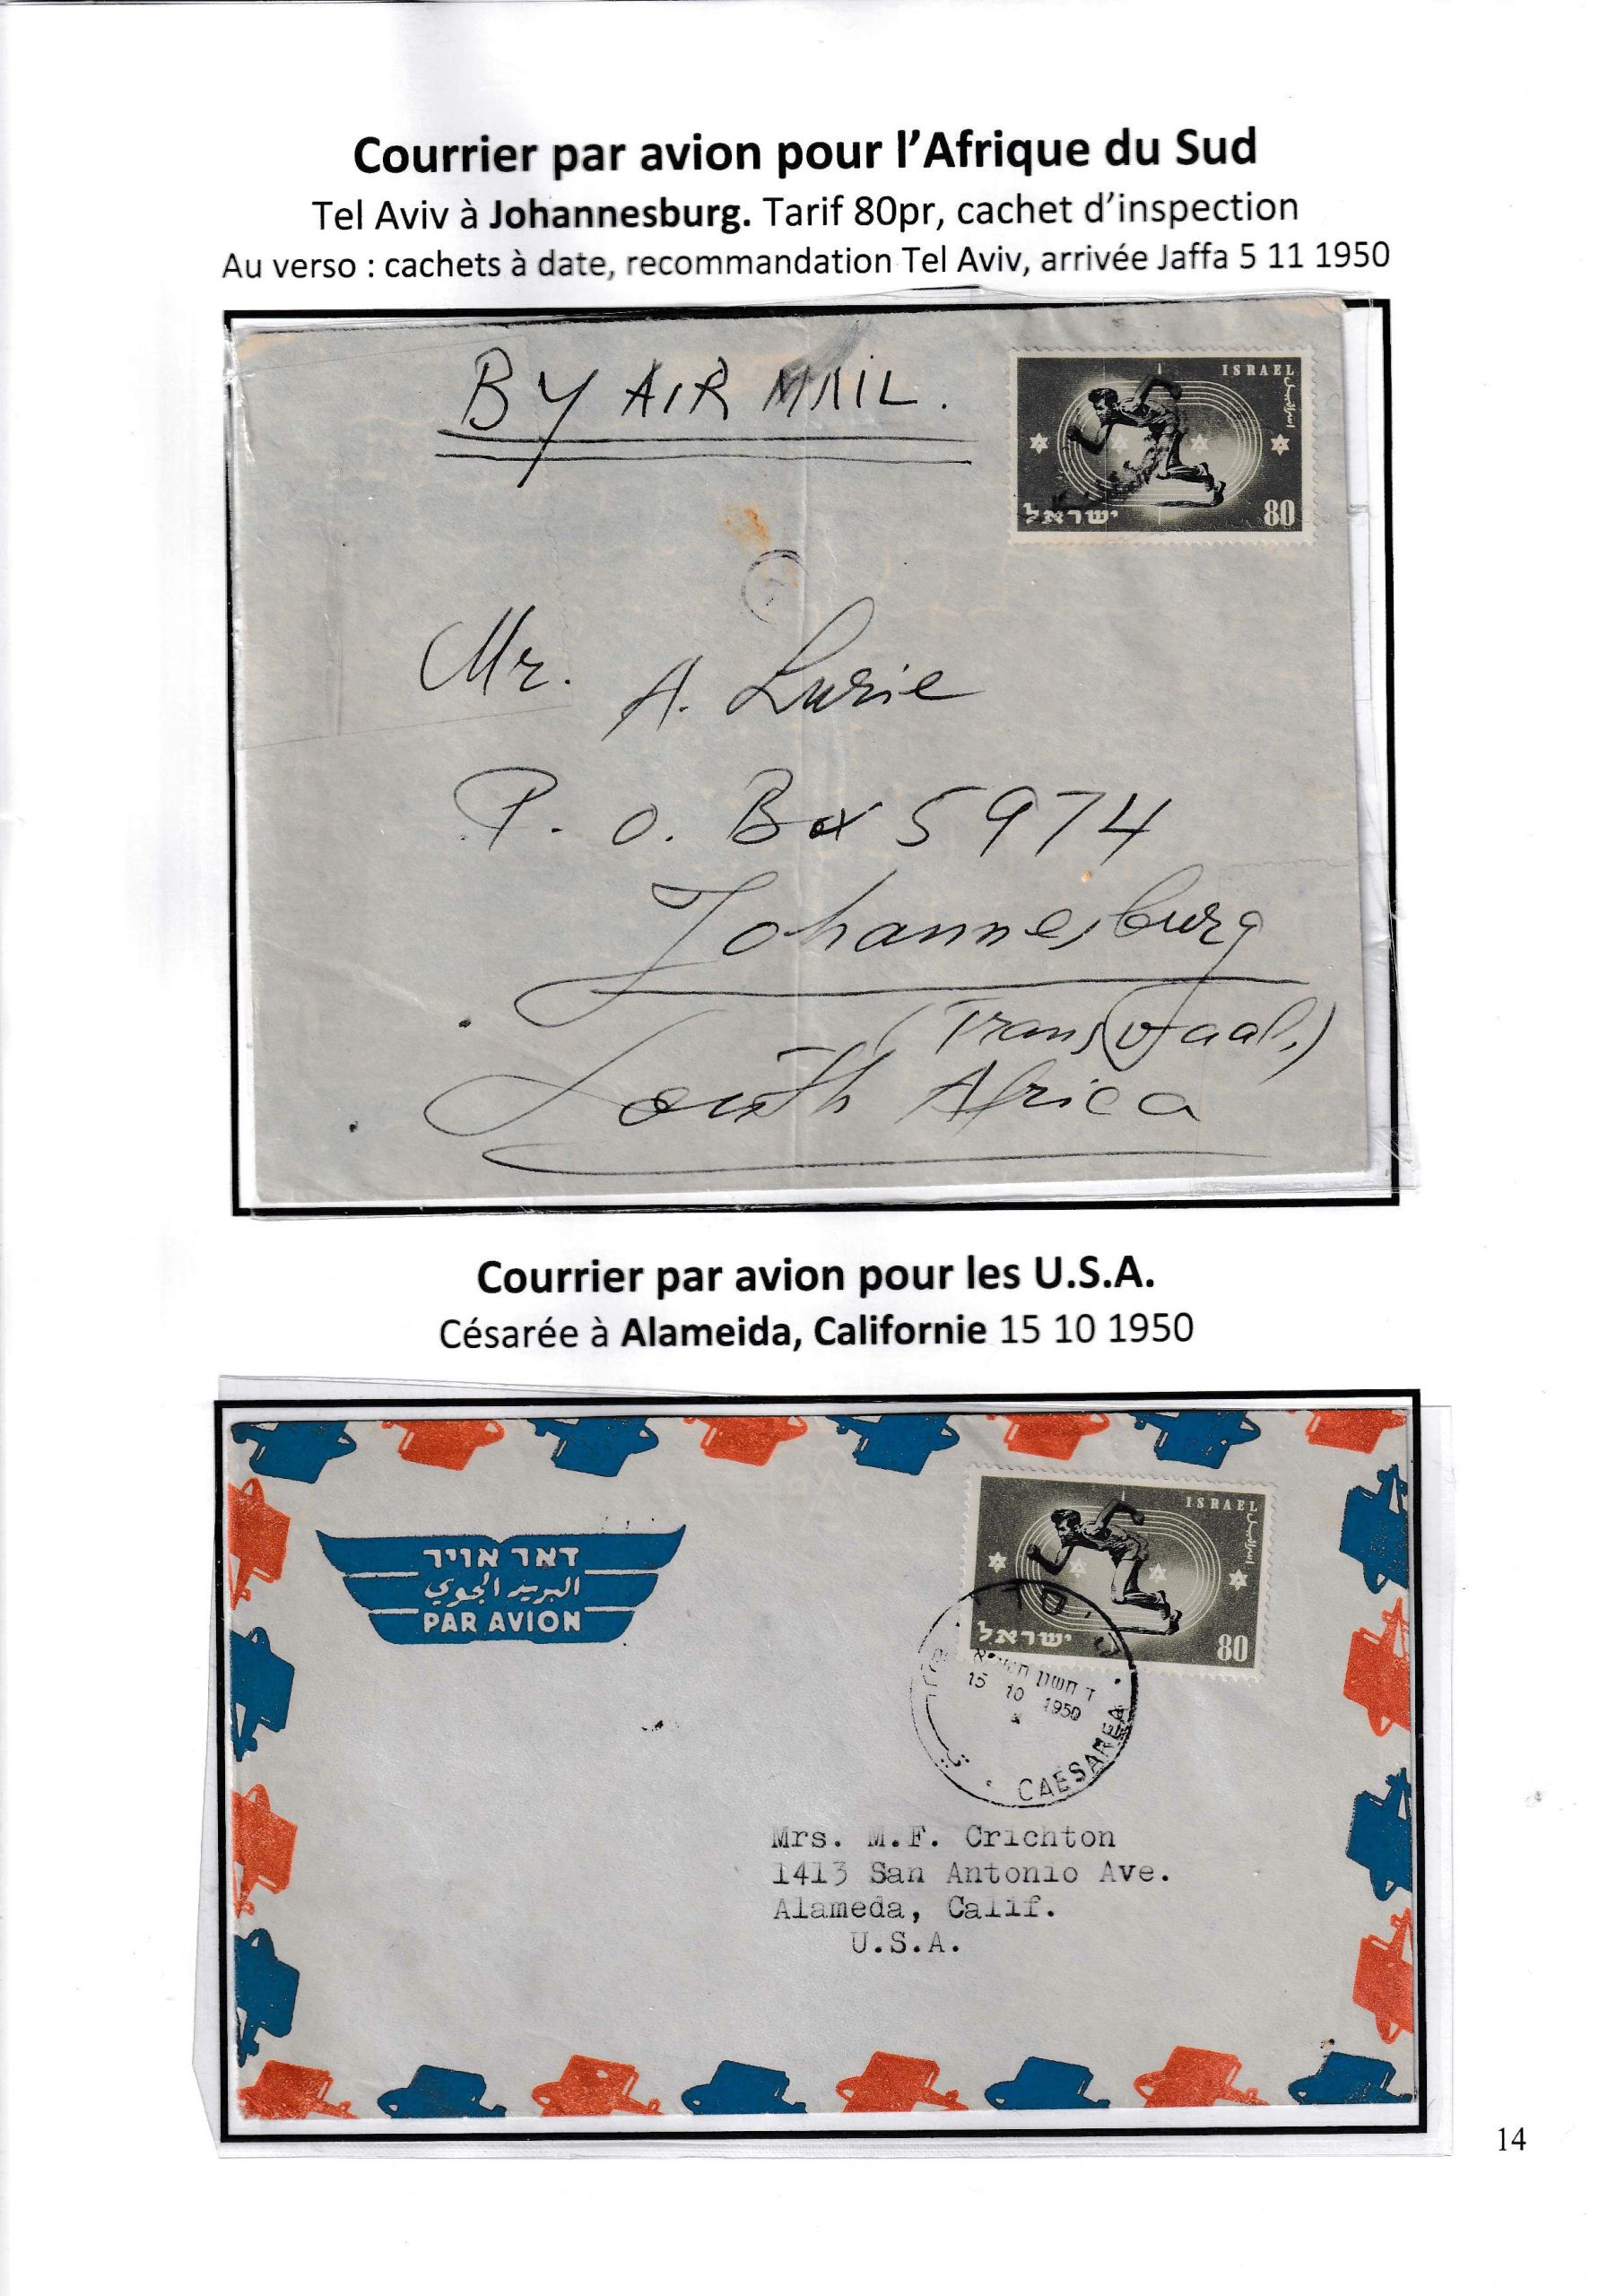 Courrier par avion pour l’Afrique du Sud
Tel Aviv à Johannesburg. Tarif 80pr, cachet d’inspection
Au verso : cachets à date, recommandation Tel Aviv, arrivée Jaffa 5 11 1950
BY AIR MAIL.
ISRAEL
اسرائيل
ישראל
80
Mr. A. Lurie
P. O. Box 5974
Johannesburg
(Transvaal.)
South Africa
Courrier par avion pour les U.S.A.
Césarée à Alameida, Californie 15 10 1950
דאר אויר
البريد الجوي
PAR AVION
ISRAEL
اسرائيل
ישראל
80
ד חשון תשי"א
15 10 1950
CAESAREA
Mrs. M.F. Crichton
1413 San Antonio Ave.
Alameda, Calif.
U.S.A.
14